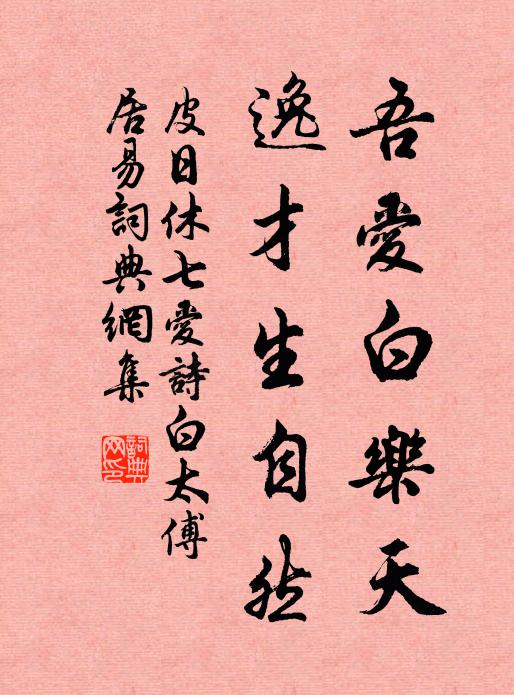 吾愛白樂天
逸才生自然
皮日休七愛詩白太傅
居易詞典網集
詞典網印